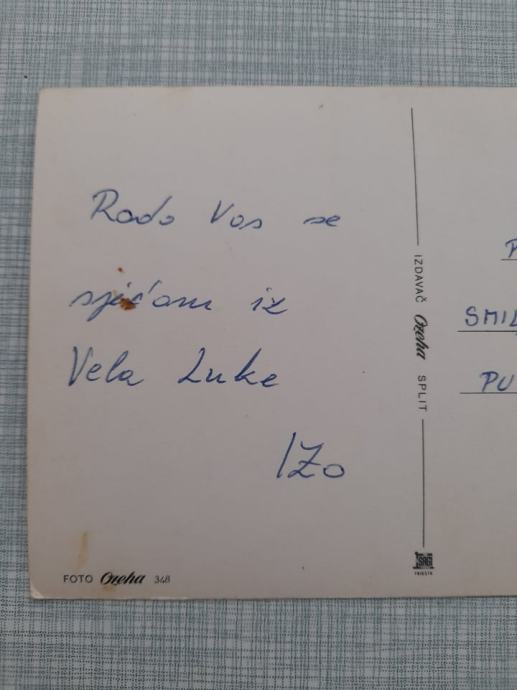 Rado Vas se
sjećam iz
Vela Luke
IZo
FOTO Oreha 348
IZDAVAČ Oreha SPLIT
TRIESTE
P
SMILJ
PU